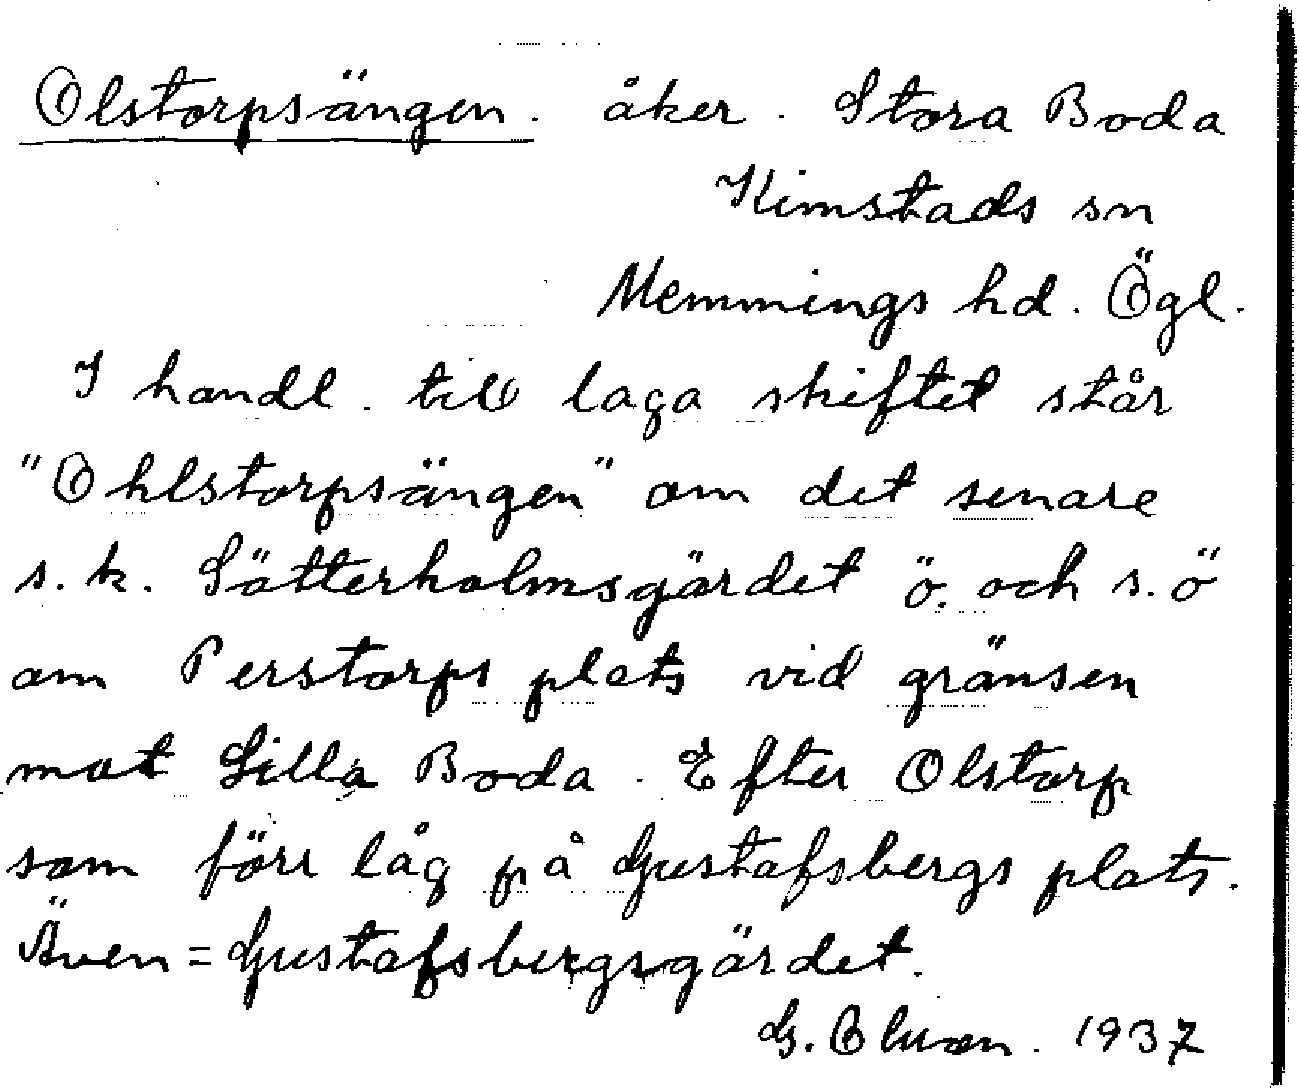 Olstorpsängen. åker. Stora Boda
Kimstads sn
Memmings hd. Ögl.
I handl. till laga skiftet står
"Ohlstorpsängen" om det senare
s.k. Sätterholmsgärdet ö. och s.ö
om Perstorps plats vid gränsen
mot Lilla Boda. Efter Olstorp
som förr låg på Gustafsbergs plats.
Även = Gustafsbergsgärdet.
G. 1937